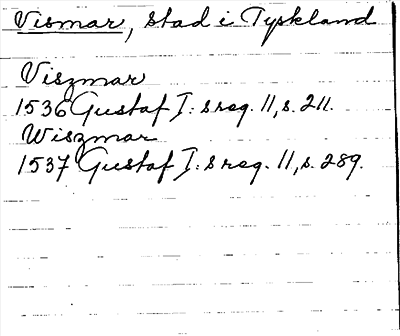 Vismar, stad i Tyskland
Viszmar
1536 Gustaf I: s reg. 11, s. 211.
Wiszmar
1537 Gustaf I: s reg. 11, s. 289.